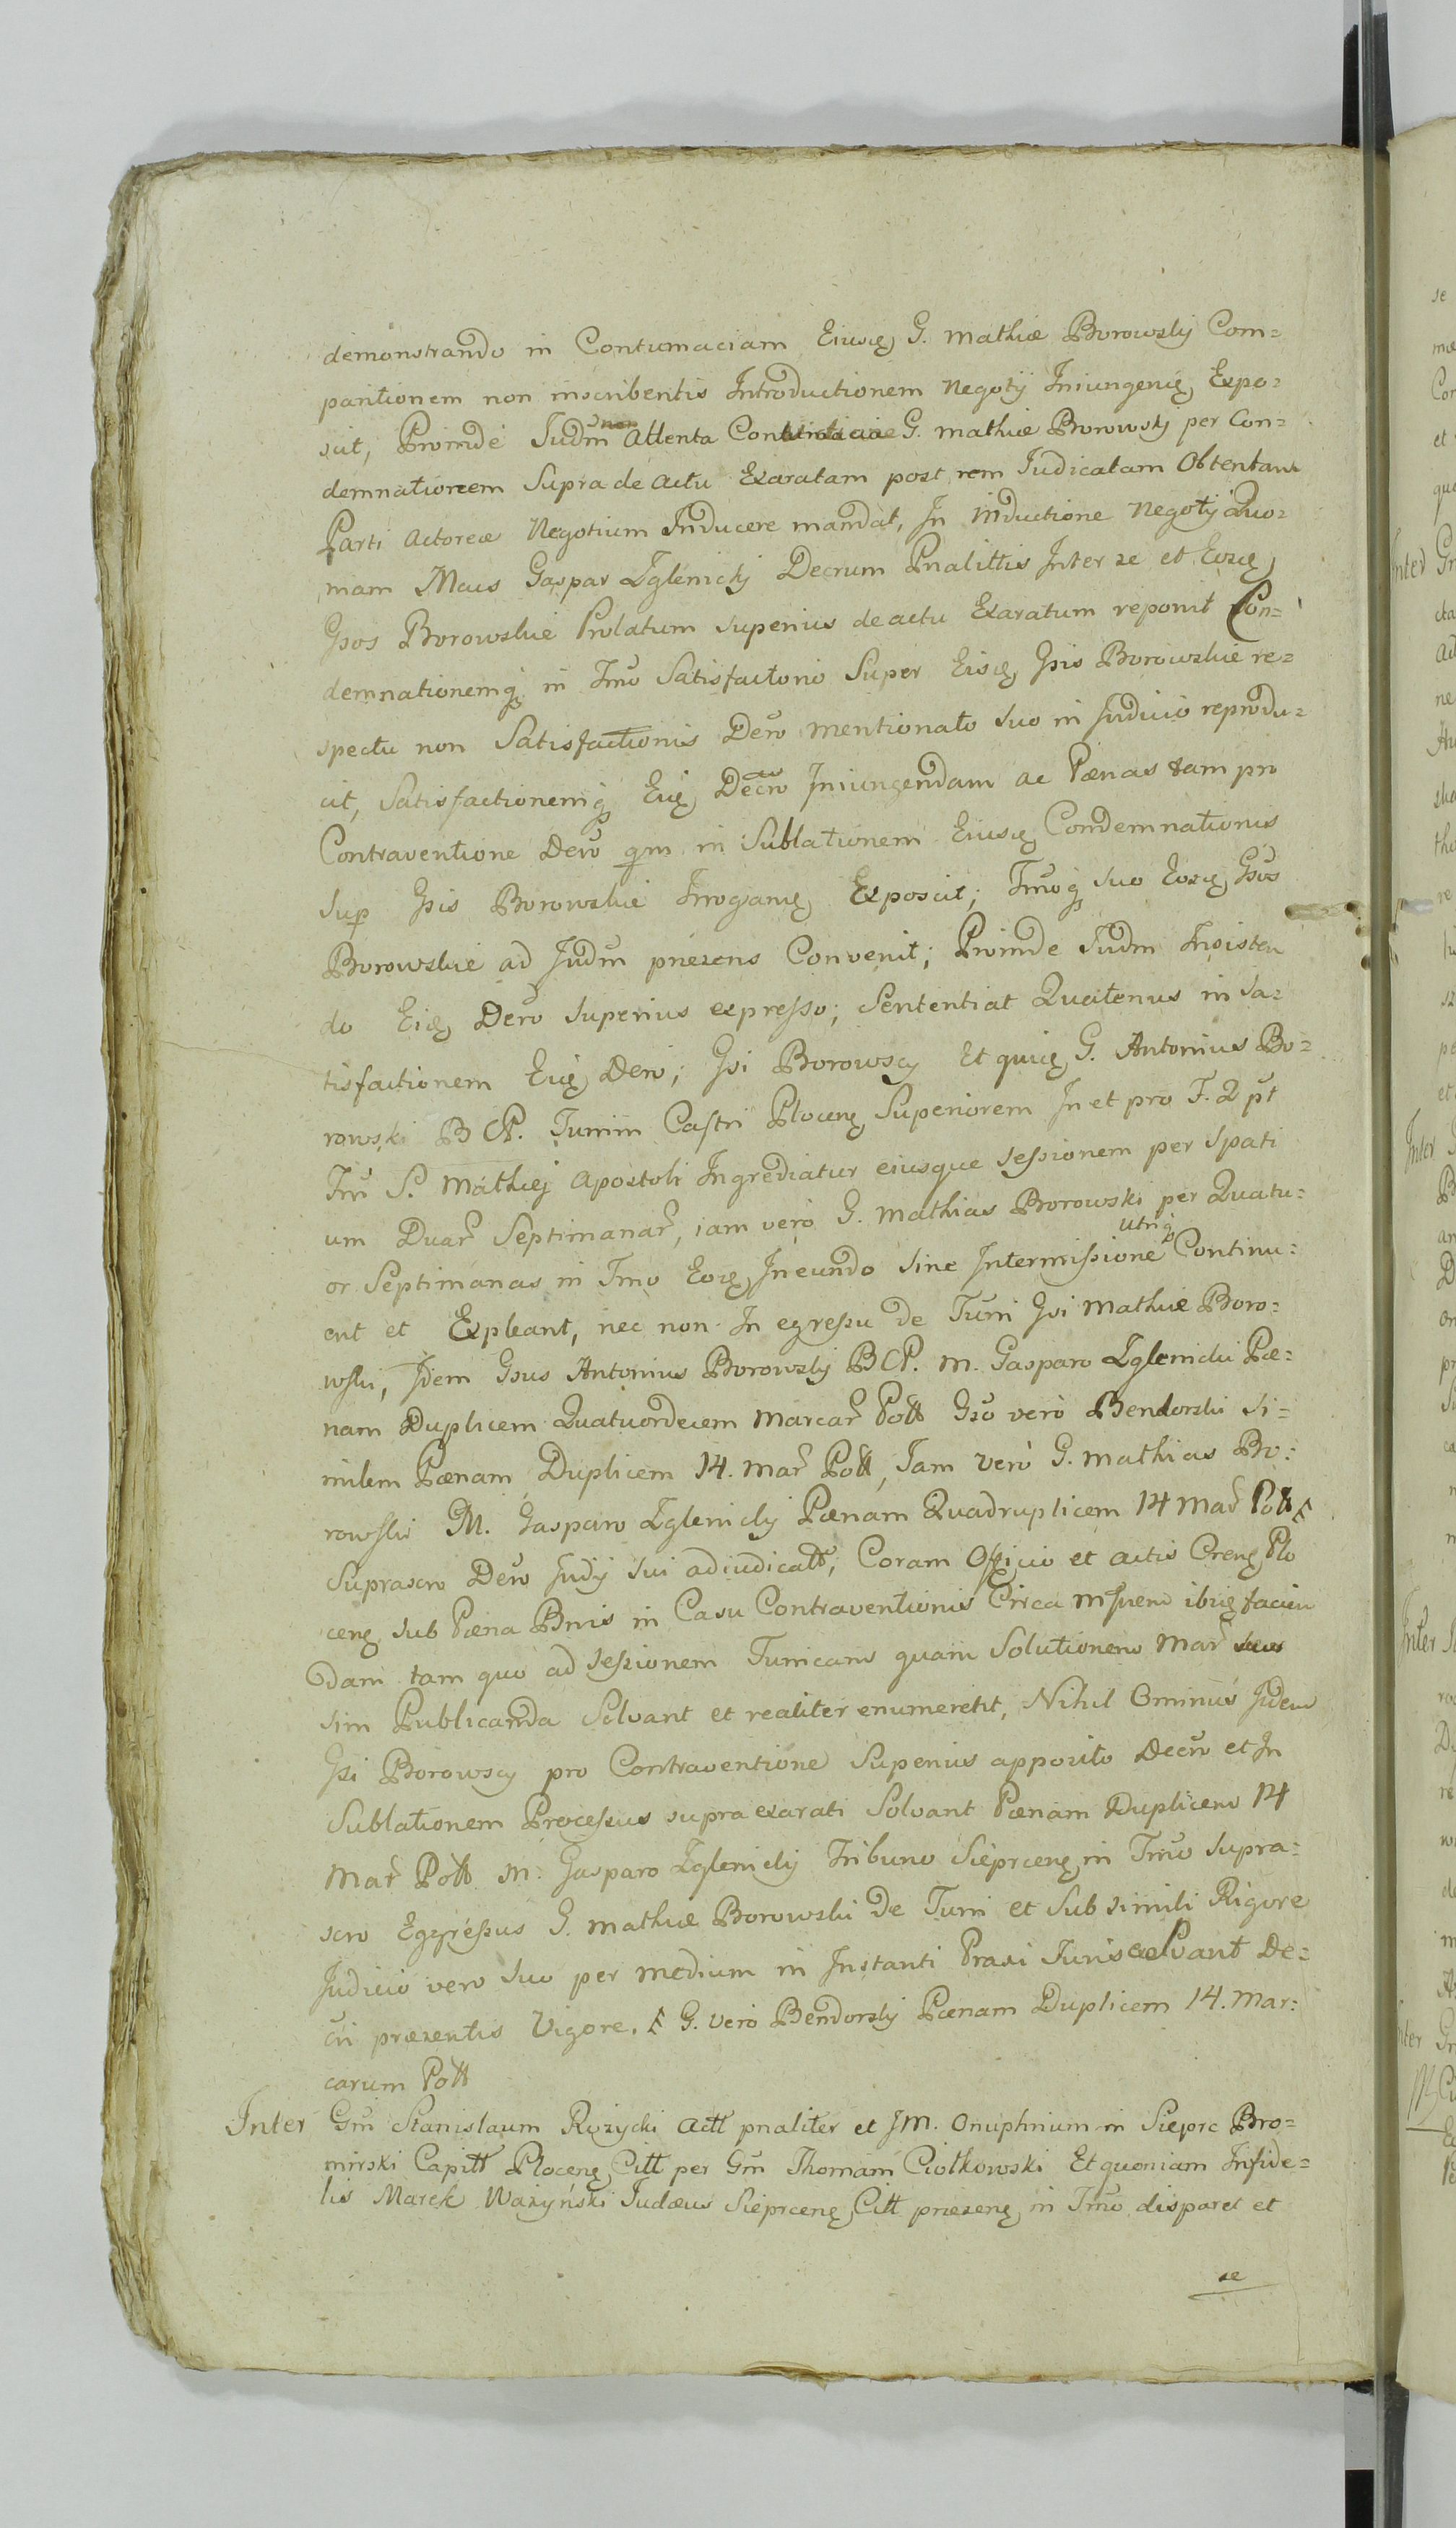 demonstrando in Contumaciam Eiusdę G. Mathiæ Borowskij Com=
paritionem non inscribentis Introductionem Negotij Iniungendę Expo=
scit, Proinde Judm non Attenta Contumacia G. Mathiæ Borowskj per Con=
demnationem Supra de actu Exaratam post rem Iudicatam Obtentam
Parti Actoreæ Negotium Inducere mandat, In Inductione Negotij Quo=
niam Mcus Gaspar Zglenickj Decrum Pnalittis Inter se et Eosdę
Gsos Borowskie Prolatum superius de actu Exaratum reponit Con=
demnationemq in Tmo Satisfactorio Super Eisdę Gsis Borowskie re=
spectu non Satisfactionis Dero mentionato suo in Judicio reprodu=
cit, Satisfactionemq Eiusdę Decro Iniungendam ac Pænas tam pro
Contraventione Dero qm in Sublationem Eiusdę Condemnationis
Sup Gsis Borowskie Irrogandę Exposcit; Tmoq suo Eosdę Gsos
Borowskie ad Judm præsens Convenit; Proinde Judm Insisten
do Eidę Dero superius expresso; Sententiat Quatenus in Sa=
tisfactionem Eiusdę Deri; Gsi Borowscy Et quidę G. Antonius Bo=
rowski BCP. Turrim Castri Plocenę Superiorem In et pro F. 2 pst
Fm S. Mathiej Apostoli Ingrediatur eiusque sessionem per Spati
um Duar Septimanar, iam vero G. Mathias Borowski per Quatu=
or Septimanas in Tmo Eodę Ineundo sine Intermissione utriq Continu=
ent et Expleant, nec non In egressu de Turri Gsi Mathiæ Boro=
wski, Idem Gsus Antonius Borowskj BCP. M. Gasparo Zglenicki Pæ=
nam Duplicem Quatuordecem Marcar Poll Gso vero Bendorski Si=
milem Pænam Duplicem 14. Mar Poll, Iam vero G. Mathias Bo=
rowski M. Gasparo Zglenickj Pænam Quadruplicem 14 Mar Poll
Suprascro Dero Judij sui adiudicatt, Coram Officio et actis Crenę Plo
cenę sub Pæna Bnis in Casu Contraventionis Circa mssnem ibidę facien
dam tam quo ad Sessionem Turricam quam Solutionem Mar
sim Publicanda Solvant et realiter enumerent, Nihil Ominus Iidem
Gsi Borowscy pro Contraventione Superius apposito Decro et In
Sublationem Processus supra exarati Solvant Pænam Duplicem 14
Mar Poll M. Gasparo Zglenickj Tribuno Sieprcenę in Tmo Supra=
scro Eggressus G. Mathiæ Borowski de Turri et Sub simili Rigore
Judicio vero suo per medium in Instanti Praxi Juris Solvant De=
cri præsentis Vigore. G. vero Bendorskj Pænam Duplicem 14. Mar=
carum Poll
Inter Gm Stanislaum Rożycki Actt pnaliter et JM. Onuphrium in Sieprc Bro=
mirski Capitt Plocenę Citt per Gm Thomam Ciołkowski Et quoniam Infide=
lis Marek Ważyński Judæus Sieprcenę Citt præsenę in Tmo disparet et
se